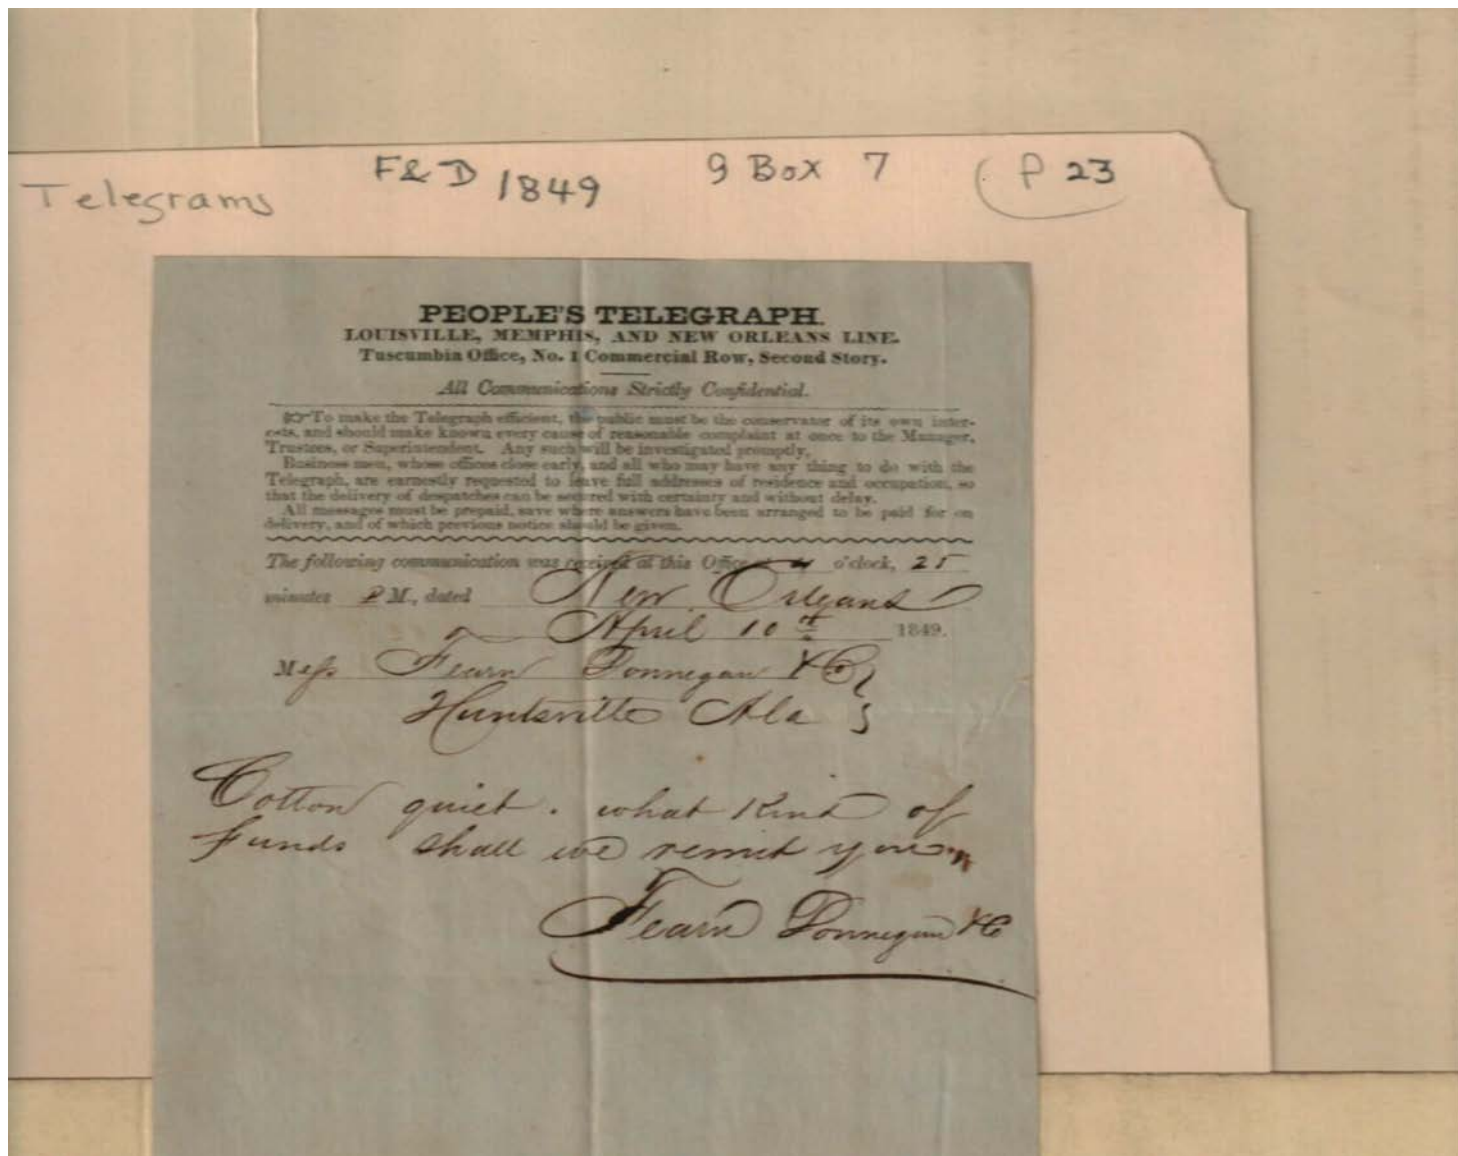 Telegrams F&D 1849 9 Box 7 P 23
PEOPLE'S TELEGRAPH.
LOUISVILLE, MEMPHIS, AND NEW ORLEANS LINE.
Tuscumbia Office, No. 1 Commercial Row, Second Story.
All Communications Strictly Confidential.
☞To make the Telegraph efficient, the public must be the conservator of its own inter-
ests, and should make known every cause of reasonable complaint at once to the Manager,
Trustees, or Superintendent. Any such will be investigated promptly.
Business men, whose offices close early, and all who may have any thing to do with the
Telegraph, are earnestly requested to leave full addresses of residence and occupation, so
that the delivery of despatches can be secured with certainty and without delay.
All messages must be prepaid, save where answers have been arranged to be paid for on
delivery, and of which previous notice should be given.
The following communication was received at this Office at o'clock, 25
minutes P M., dated New Orleans
April 10th 1849.
Mess Fearn Donnegan & Co
Huntsville Ala
Cotton quiet. what Kind of
funds shall we remit you
Fearn Donnegan & Co